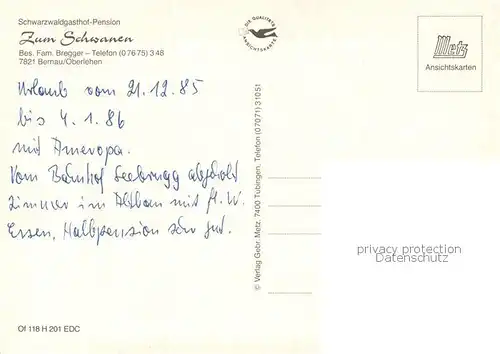 Schwarzwaldgasthof-Pension
Zum Schwanen
Bes. Fam. Bregger – Telefon (0 76 75) 3 48
7821 Bernau/Oberlehen
DIE QUALITÄTS ANSICHTSKARTE
Metz
Ansichtskarten
Urlaub vom 21.12.85
bis 4.1.86
mit Ameropa.
Vom Bahnhof Seebrugg abgeholt
Zimmer im Altbau mit fl. W.
Essen, Halbpension sehr gut.
© Verlag Gebr. Metz, 7400 Tübingen, Telefon (07071) 31051
privacy protection
AK-Ansichtskarten.de
Of 118 H 201 EDC